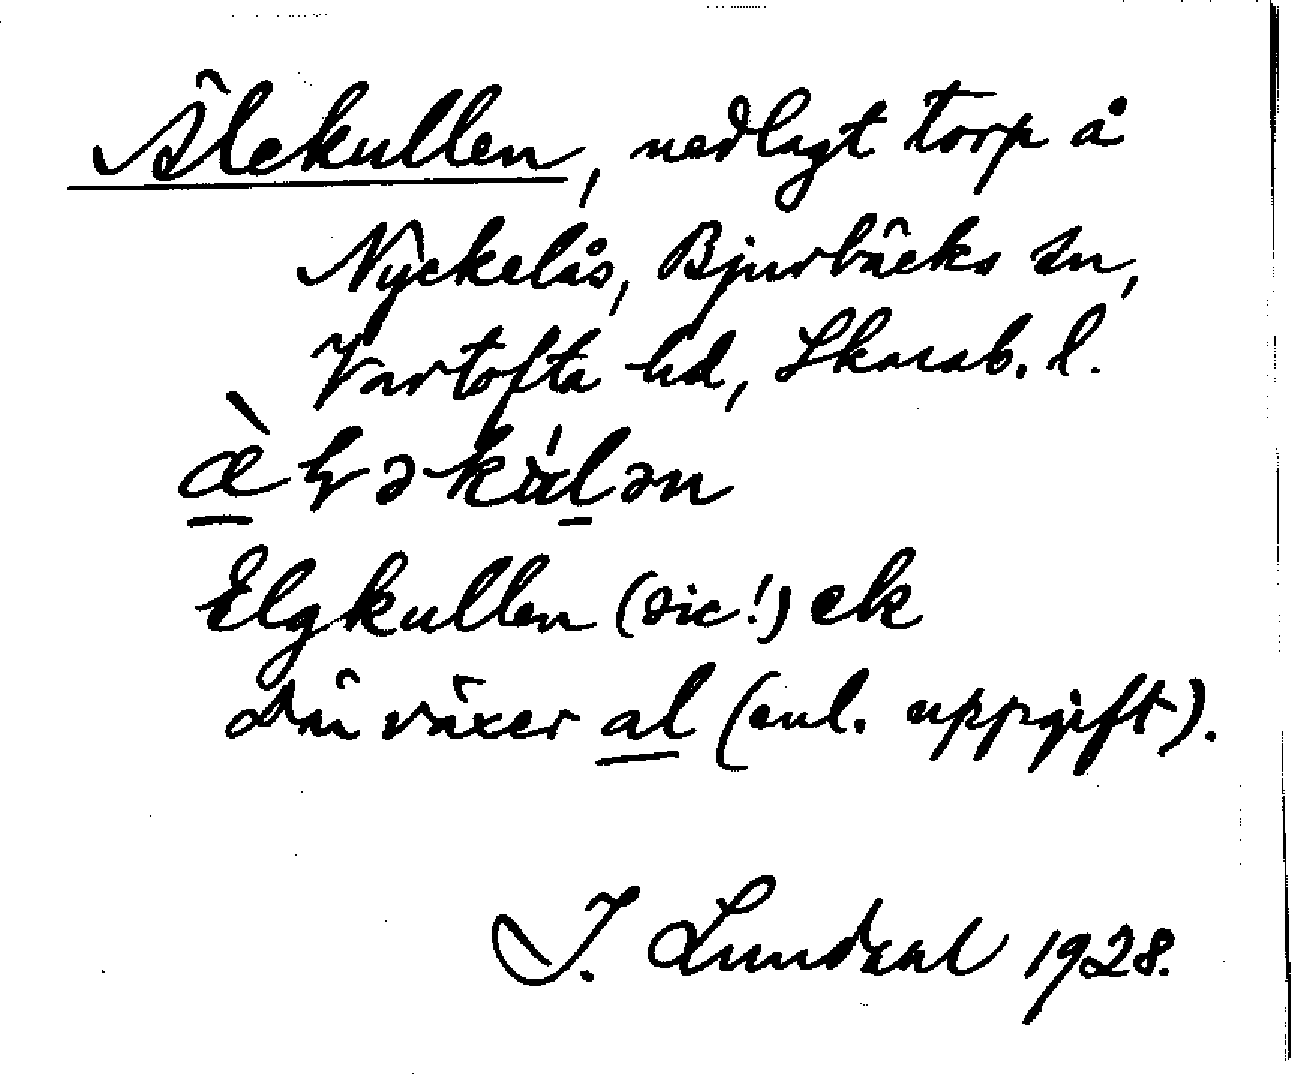 Älekullen, nedlagt torp å
Nyckelås, Bjurbäcks sn,
Vartofta hd, Skarab. l.
Elgkullen (sic!) ek
Där växer al (enl. uppgift).
I. Lundahl 1928.